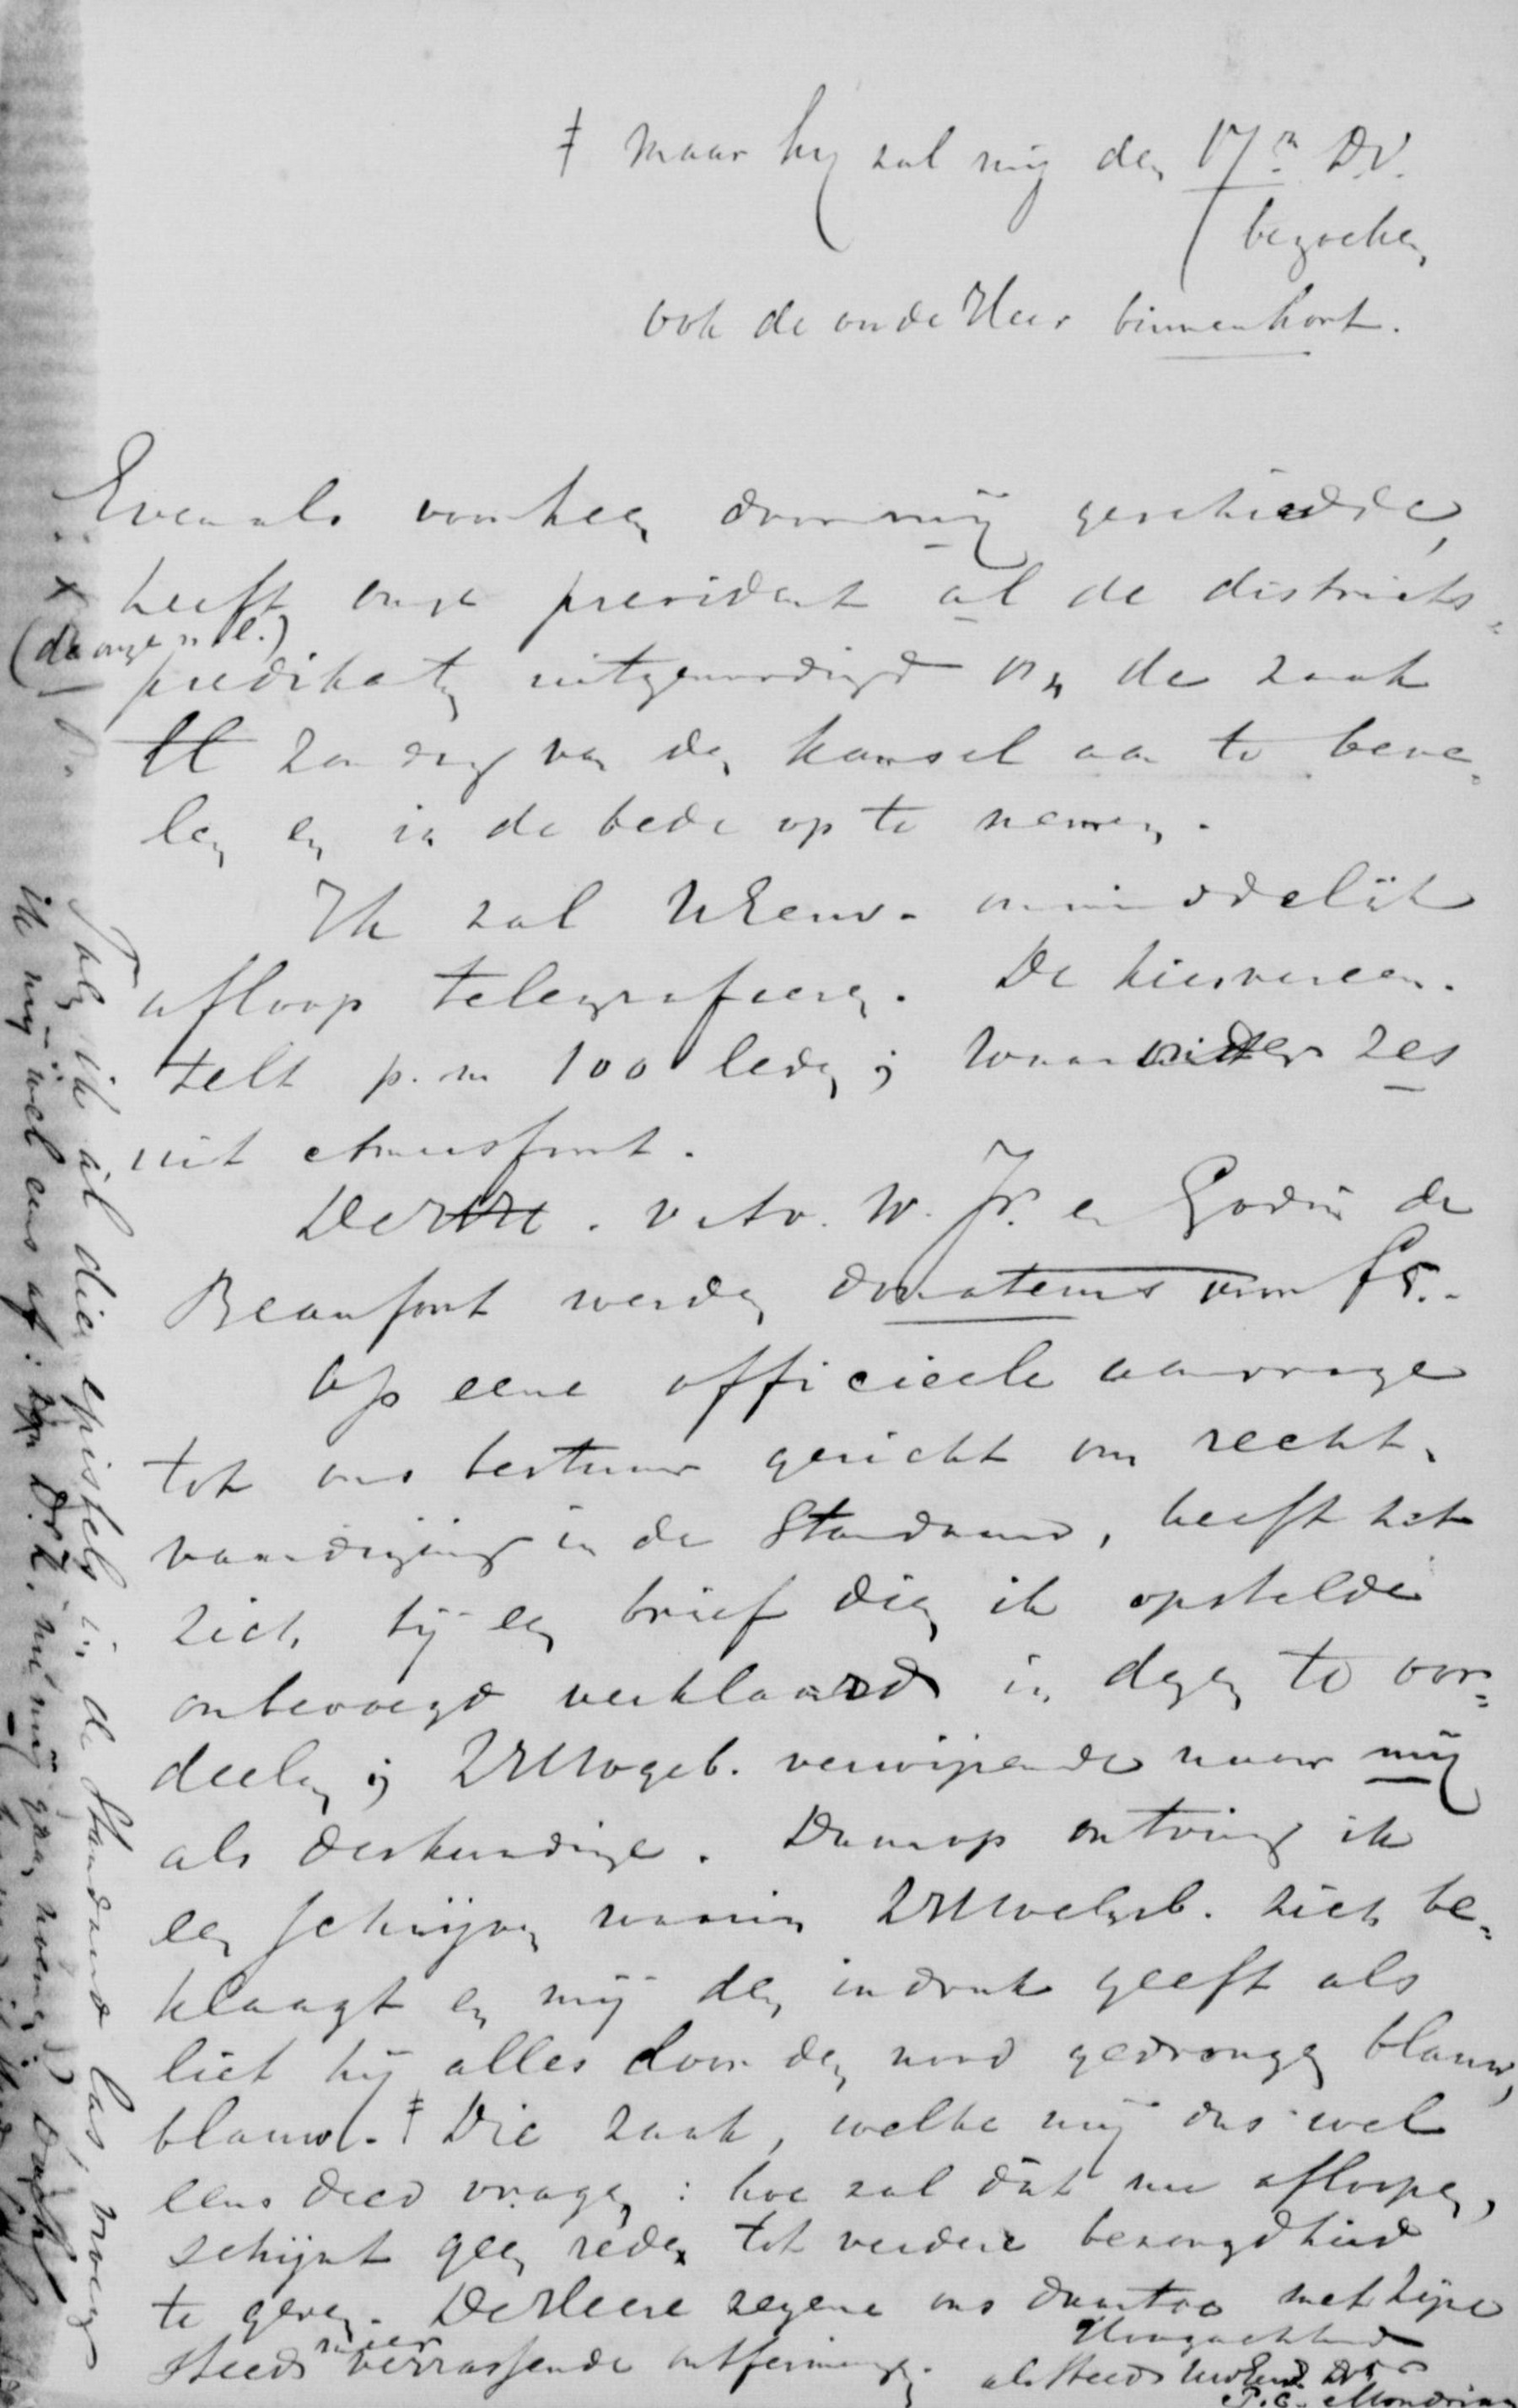 ‡ maar hij zal mij den 17n D.V.
bezoeken
ook de oude Heer binnenkort.
Evenals voorheen door mij geschiedde,
heeft onze president al de districts-
(de onze n.l.)
predikaten uitgenoodigd om de zaak
ll zondag van den kansel aan te beve-
len en in de bede op te nemen.
Ik zal UEerw. onmiddelijk
afloop telegrafeeren. De kiesvereen.
telt p.m 100 leden; waaronder zes
uit Amersfoort.
De Heer v. W. Jr. en Godin de
Beaufort werden donateurs voor f5.-
Op eene officieele aanvrage
tot ons bestuur gericht om recht-
vaardiging in de Standaard, heeft het
zich bij een brief dien ik opstelde
onbevoegd verklaard in dezen te oor-
deelen; ZHWelgeb. verwijzende naar mij
als deskundige. Daarop ontving ik
een schrijven waarin ZHWelgeb. zich be-
klaagt en mij den indruk geeft als
liet hij alles door den nood gedrongen blauw,
blauw. ‡ Die zaak, welke mij dus wel
eens deed vragen: hoe zal dát nu afloopen,
schijnt geen reden tot verdere bezorgdheid
te geven. De Heere zegene ons daartoe met Zijne
steeds meer verrassende ontfermingen.
Hoogachtend
als steeds UwEerw. Dr
P.C. Mondriaan
Toen ik al die epistels in de Standaard las, vroeg
ik mij wel eens af: zou Dr. K. nu mij gaan noemen?